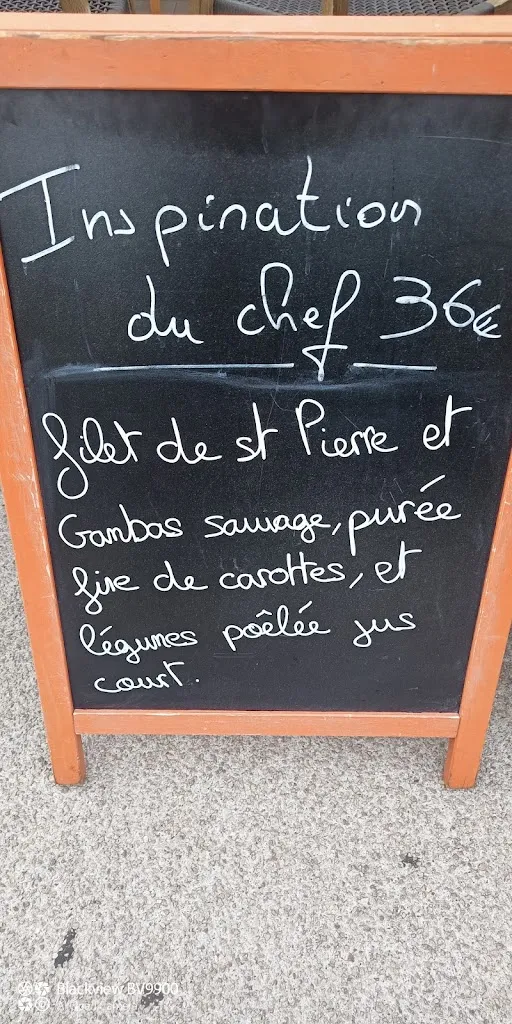 Inspiration
du chef 36€
filet de st Pierre et
Gambas sauvage, purée
fine de carottes, et
légumes poêlée jus
court.
Blackview BV9900